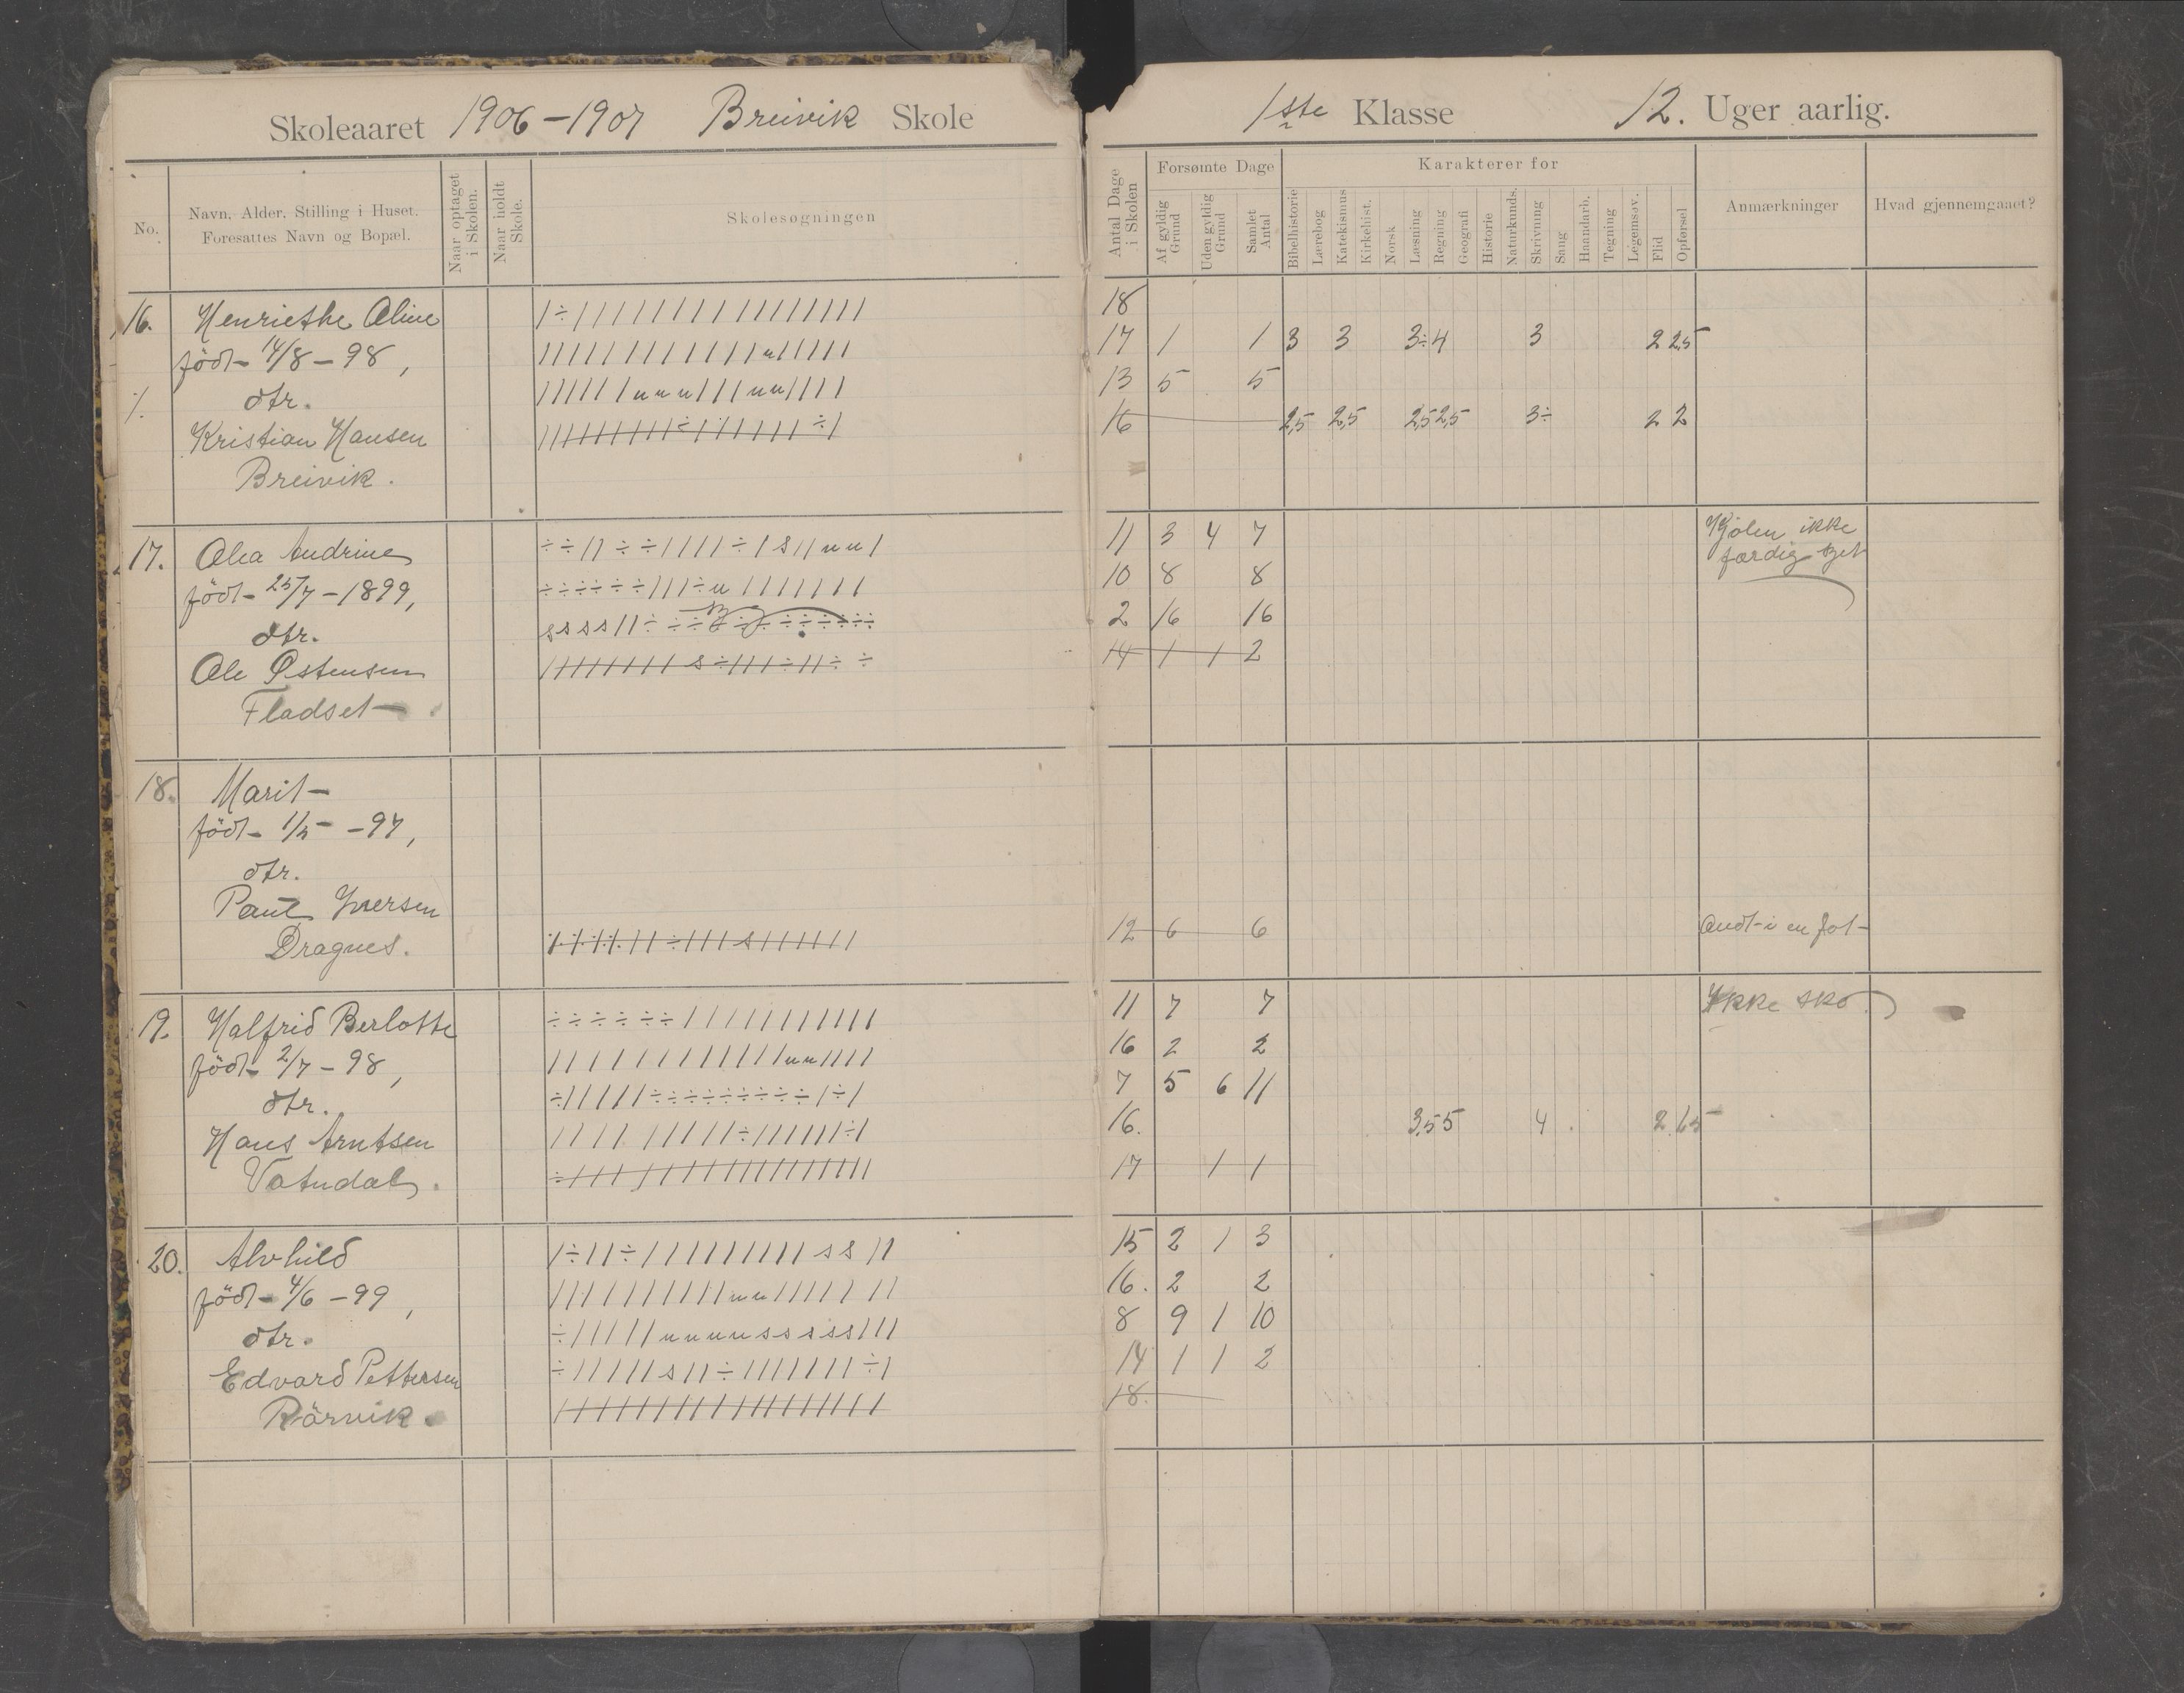 Skoleaaret 1906-1907 Breivik Skole
1ste Klasse 12. Uger aarlig.
No.
Navn, Alder, Stilling i Huset.
Foresattes Navn og Bopæl.
Naar optaget
i Skolen.
Naar holdt
Skole.
Skolesøgningen
Antal Dage
i Skolen
Forsømte Dage
Af gyldig
Grund
Uden gyldig
Grund
Samlet
Antal
Karakterer for
Bibelhistorie
Lærebog
Katekismus
Kirkehist.
Norsk
Læsning
Regning
Geografi
Historie
Naturkunds.
Skrivning
Sang
Haandarb.
Tegning
Legemsøv.
Flid
Opførsel
Anmærkninger
Hvad gjennemgaaet?
16. Henriethe Oline
född 14/8 - 98,
dtr.
Kristian Hansen
Breivik.
18
17 1 1 3 3 3÷ 4 3 2 2,5
13 5 5
16 2,5 2,5 2,5 2,5 3÷ 2 2
17. Olea Andrine
född 25/7 - 1899,
dtr.
Ole Østensen
Fladset
11 3 4 7 Kjolen ikke
færdig syet
10 8 8
2 16 16
14 1 1 2
18. Marit
född 1/5 - 97,
dtr.
Paul Iversen
Dragnes.
12 6 6 Ondt i en fot
19. Halfrid Berlotte
född 2/7 - 98,
dtr.
Hans Arntsen
Vatndal.
11 7 7 Ikke sko.
16 2 2
7 5 6 11
16. 3,5 5 4 2 1,5
17 1 1
20. Alvhild
född 4/6 - 99,
dtr.
Edvard Pettersen
Rörvik.
15 2 1 3
16. 2 2
8 9 1 10
14 1 1 2
18.